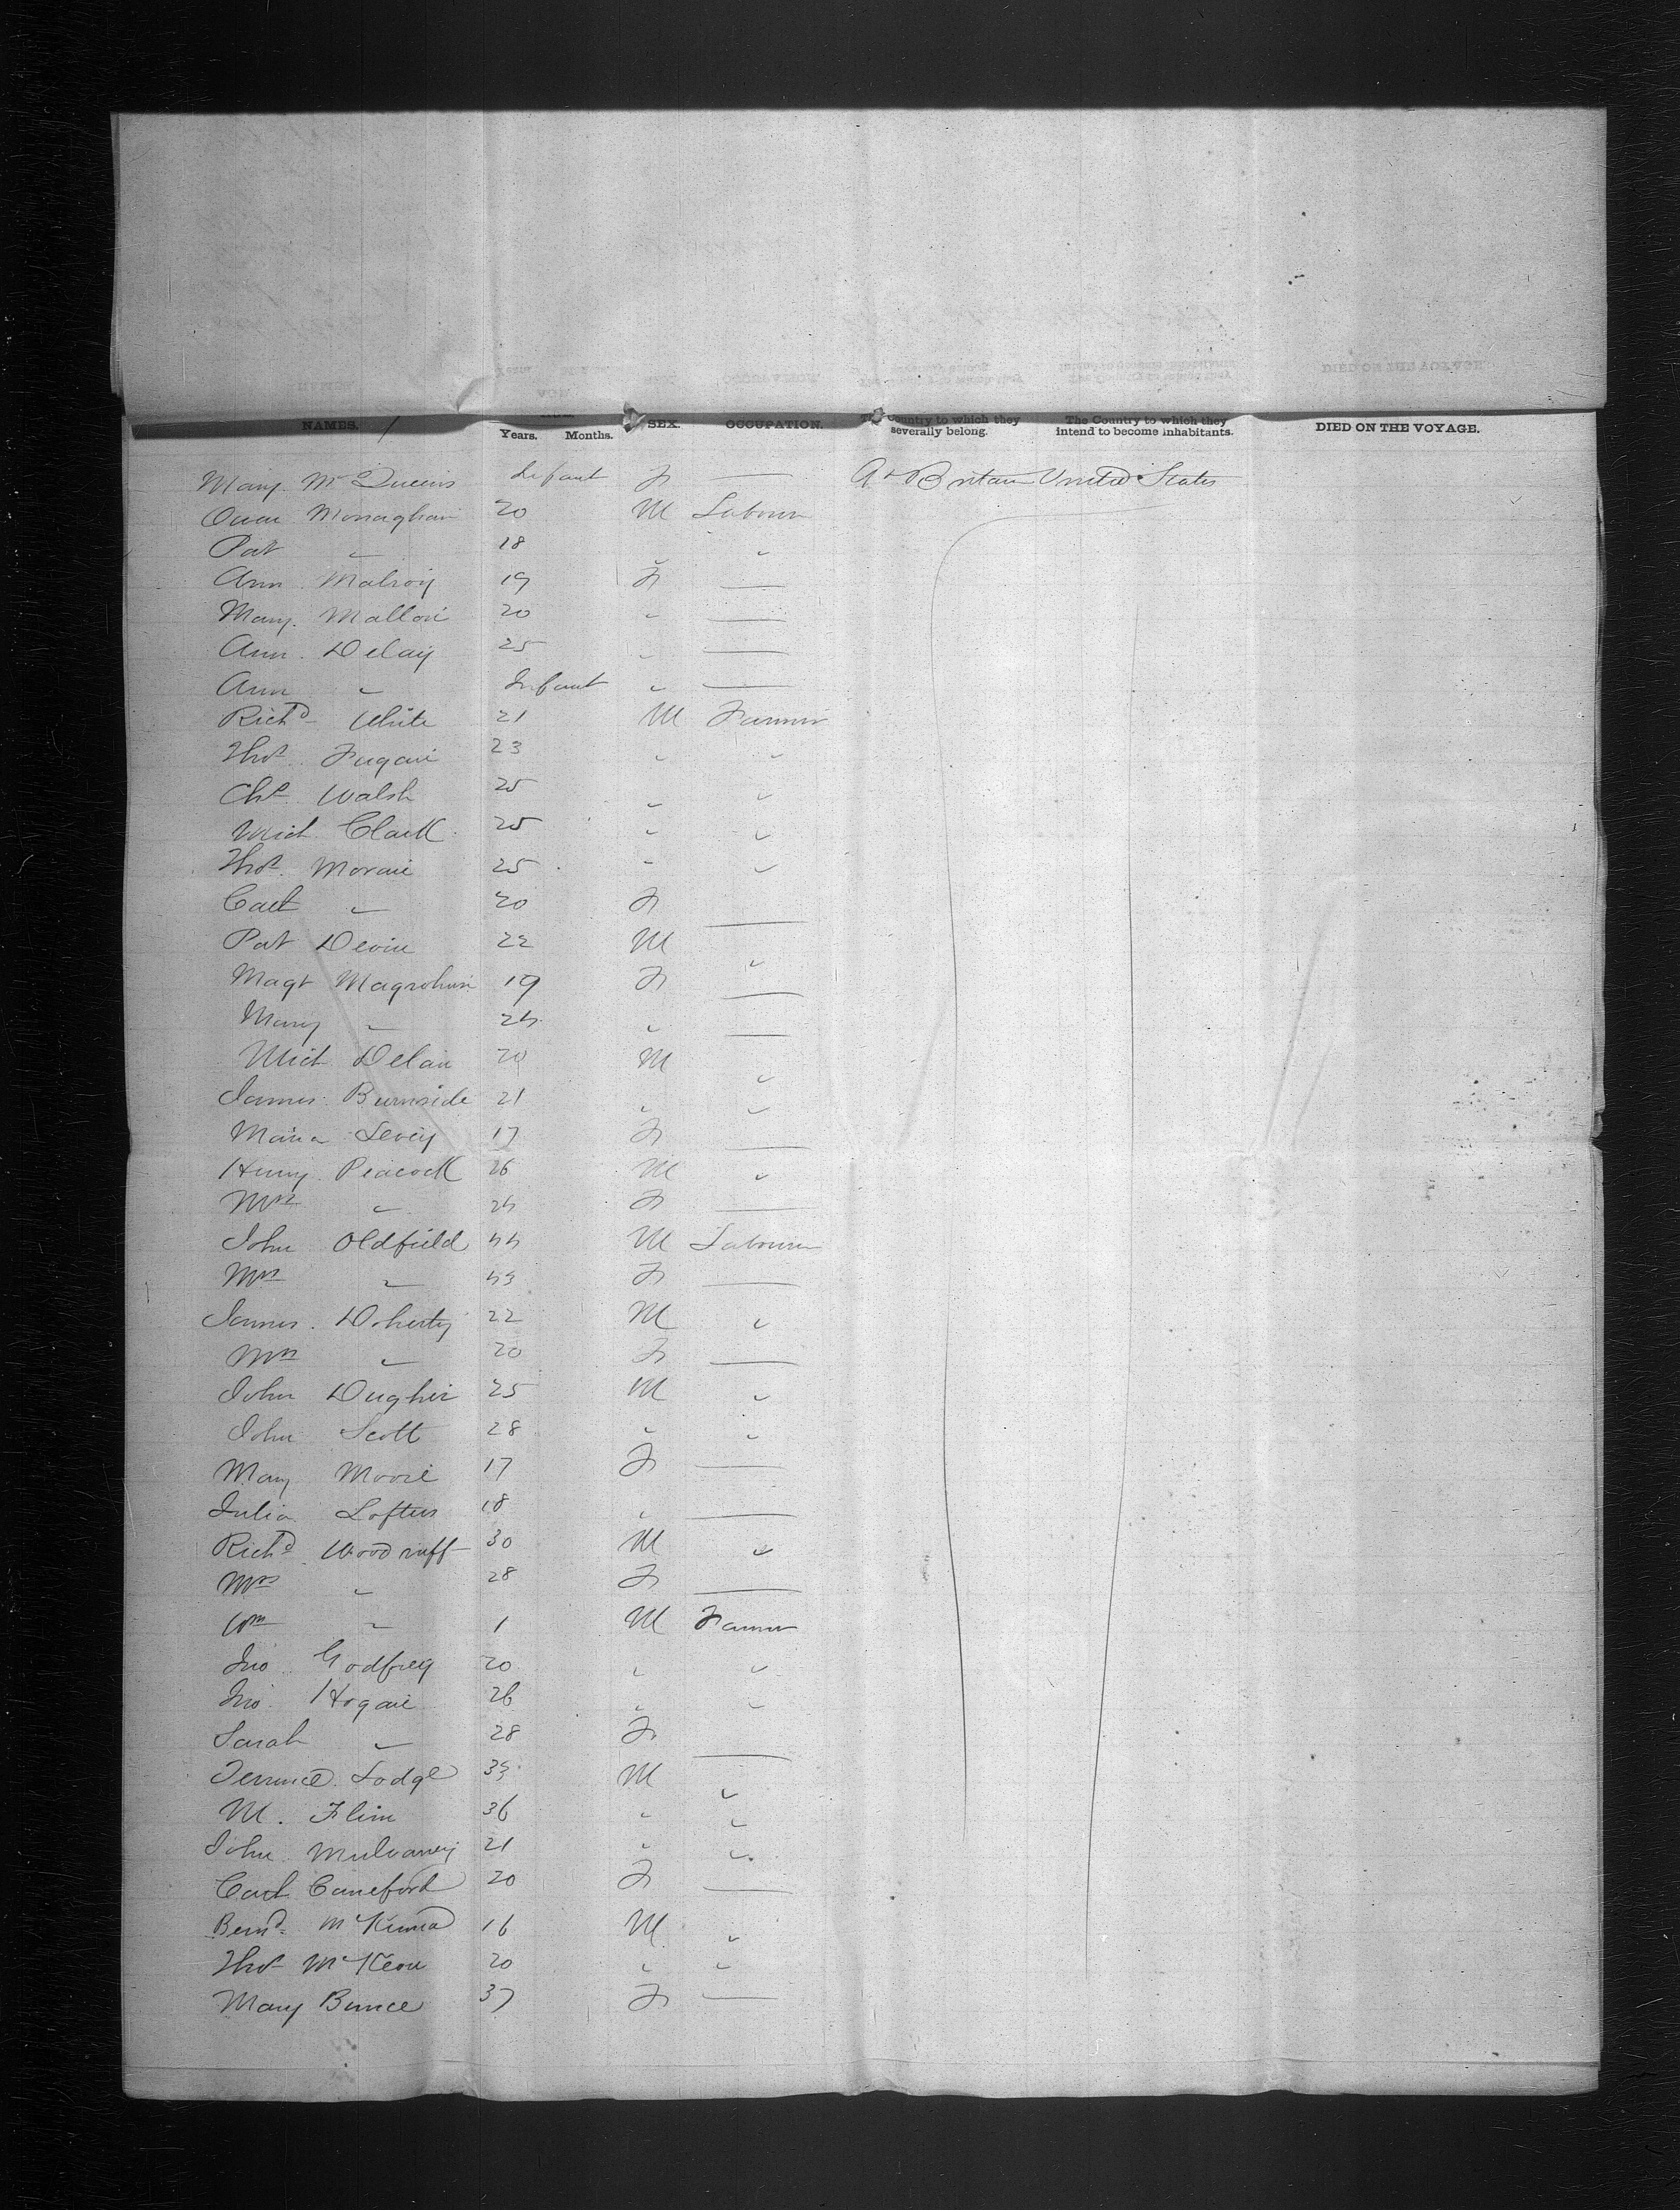 NAMES. Years. Months. SEX. OCCUPATION. The Country to which they severally belong. The Country to which they intend to become inhabitants. DIED ON THE VOYAGE.
Mary McQueens Infant F — Gt Britain United States
Owen Monaghan 20 M Labourer
Pat " 18 " "
Ann Malroy 19 F —
Mary Mallon 20 " —
Ann Delay 25 " —
Ann " Infant " —
Richd White 21 M Farmer
Thos Fugan 23 " "
Chs Walsh 25 " "
Mich Clark 25 " "
Thos Moran 25 " "
Cath " 20 F —
Pat Devin 22 M "
Magt 19 F —
Mary " 24 " —
Mich Delan 20 M "
James Burnside 21 " "
Maria Levey 17 F —
Henry Peacock 26 M "
Mrs " 24 F —
John Oldfield 44 M Labourer
Mrs " 43 F —
James Doherty 22 M "
Mrs " 20 F —
John Dugher 25 M "
John Scott 28 " "
Mary Moore 17 F —
Julia Loftus 18 " —
Richd Woodruff 30 M "
Mrs " 28 F —
Wm " 1 M Farmer
Jno Godfrey 20 " "
Jno Hogan 26 " "
Sarah " 28 F —
Terrence Lodge 33 M "
M. Flinn 36 " "
John Mulvaney 21 " "
Cath Caneford 20 F —
Bernd McKenna 16 M "
Thos McKeon 20 " "
Mary Bunce 37 F —